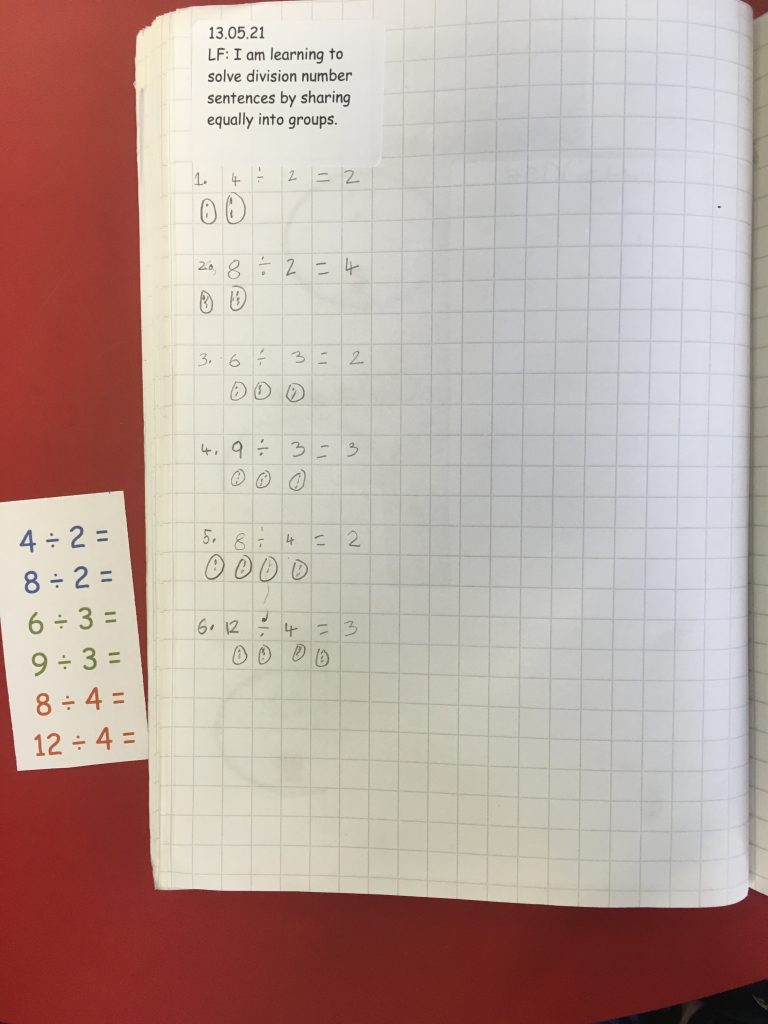 13.05.21
LF: I am learning to
solve division number
sentences by sharing
equally into groups.
1. 4 ÷ 2 = 2
2. 8 ÷ 2 = 4
3. 6 ÷ 3 = 2
4. 9 ÷ 3 = 3
5. 8 ÷ 4 = 2
6. 12 ÷ 4 = 3
4 ÷ 2 =
8 ÷ 2 =
6 ÷ 3 =
9 ÷ 3 =
8 ÷ 4 =
12 ÷ 4 =